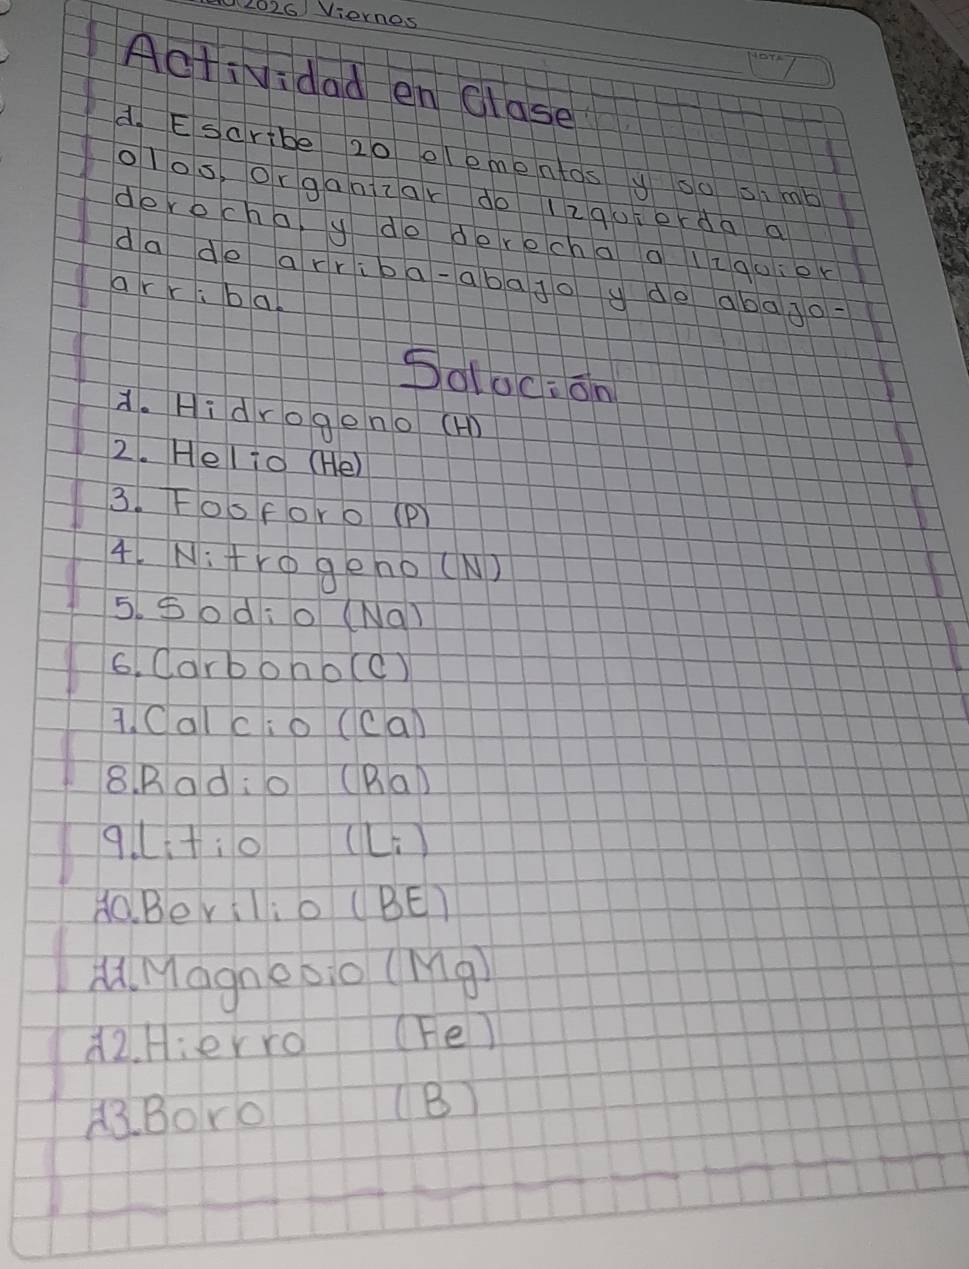 2026 Viernes
NOTA
Actividad en Clase
1. Escribe 20 elementos y su simb
olos, organizar de izquierda a
derecha, y de derecha a izquier
da de arriba-abajo y de abajo-
arriba.
Solución
1. Hidrogeno (H)
2. Helio (He)
3. Fosforo (P)
4. Nitrogeno (N)
5. Sodio (Na)
6. Carbono (C)
7. Calcio (Ca)
8. Radio (Ra)
9. Litio (Li)
10. Berilio (BE)
11. Magnesio (Mg)
12. Hierro (Fe)
13. Boro (B)